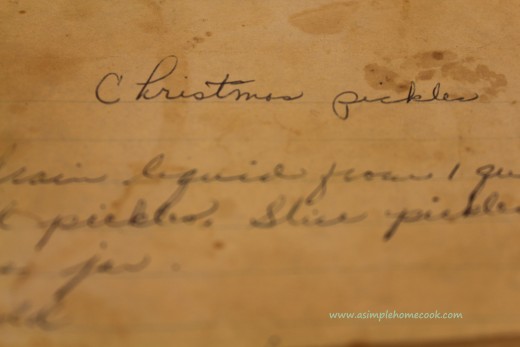 Christmas pickles
rain liquid from 1 qu
pickles. Slice pickles
jar.
www.asimplehomecook.com